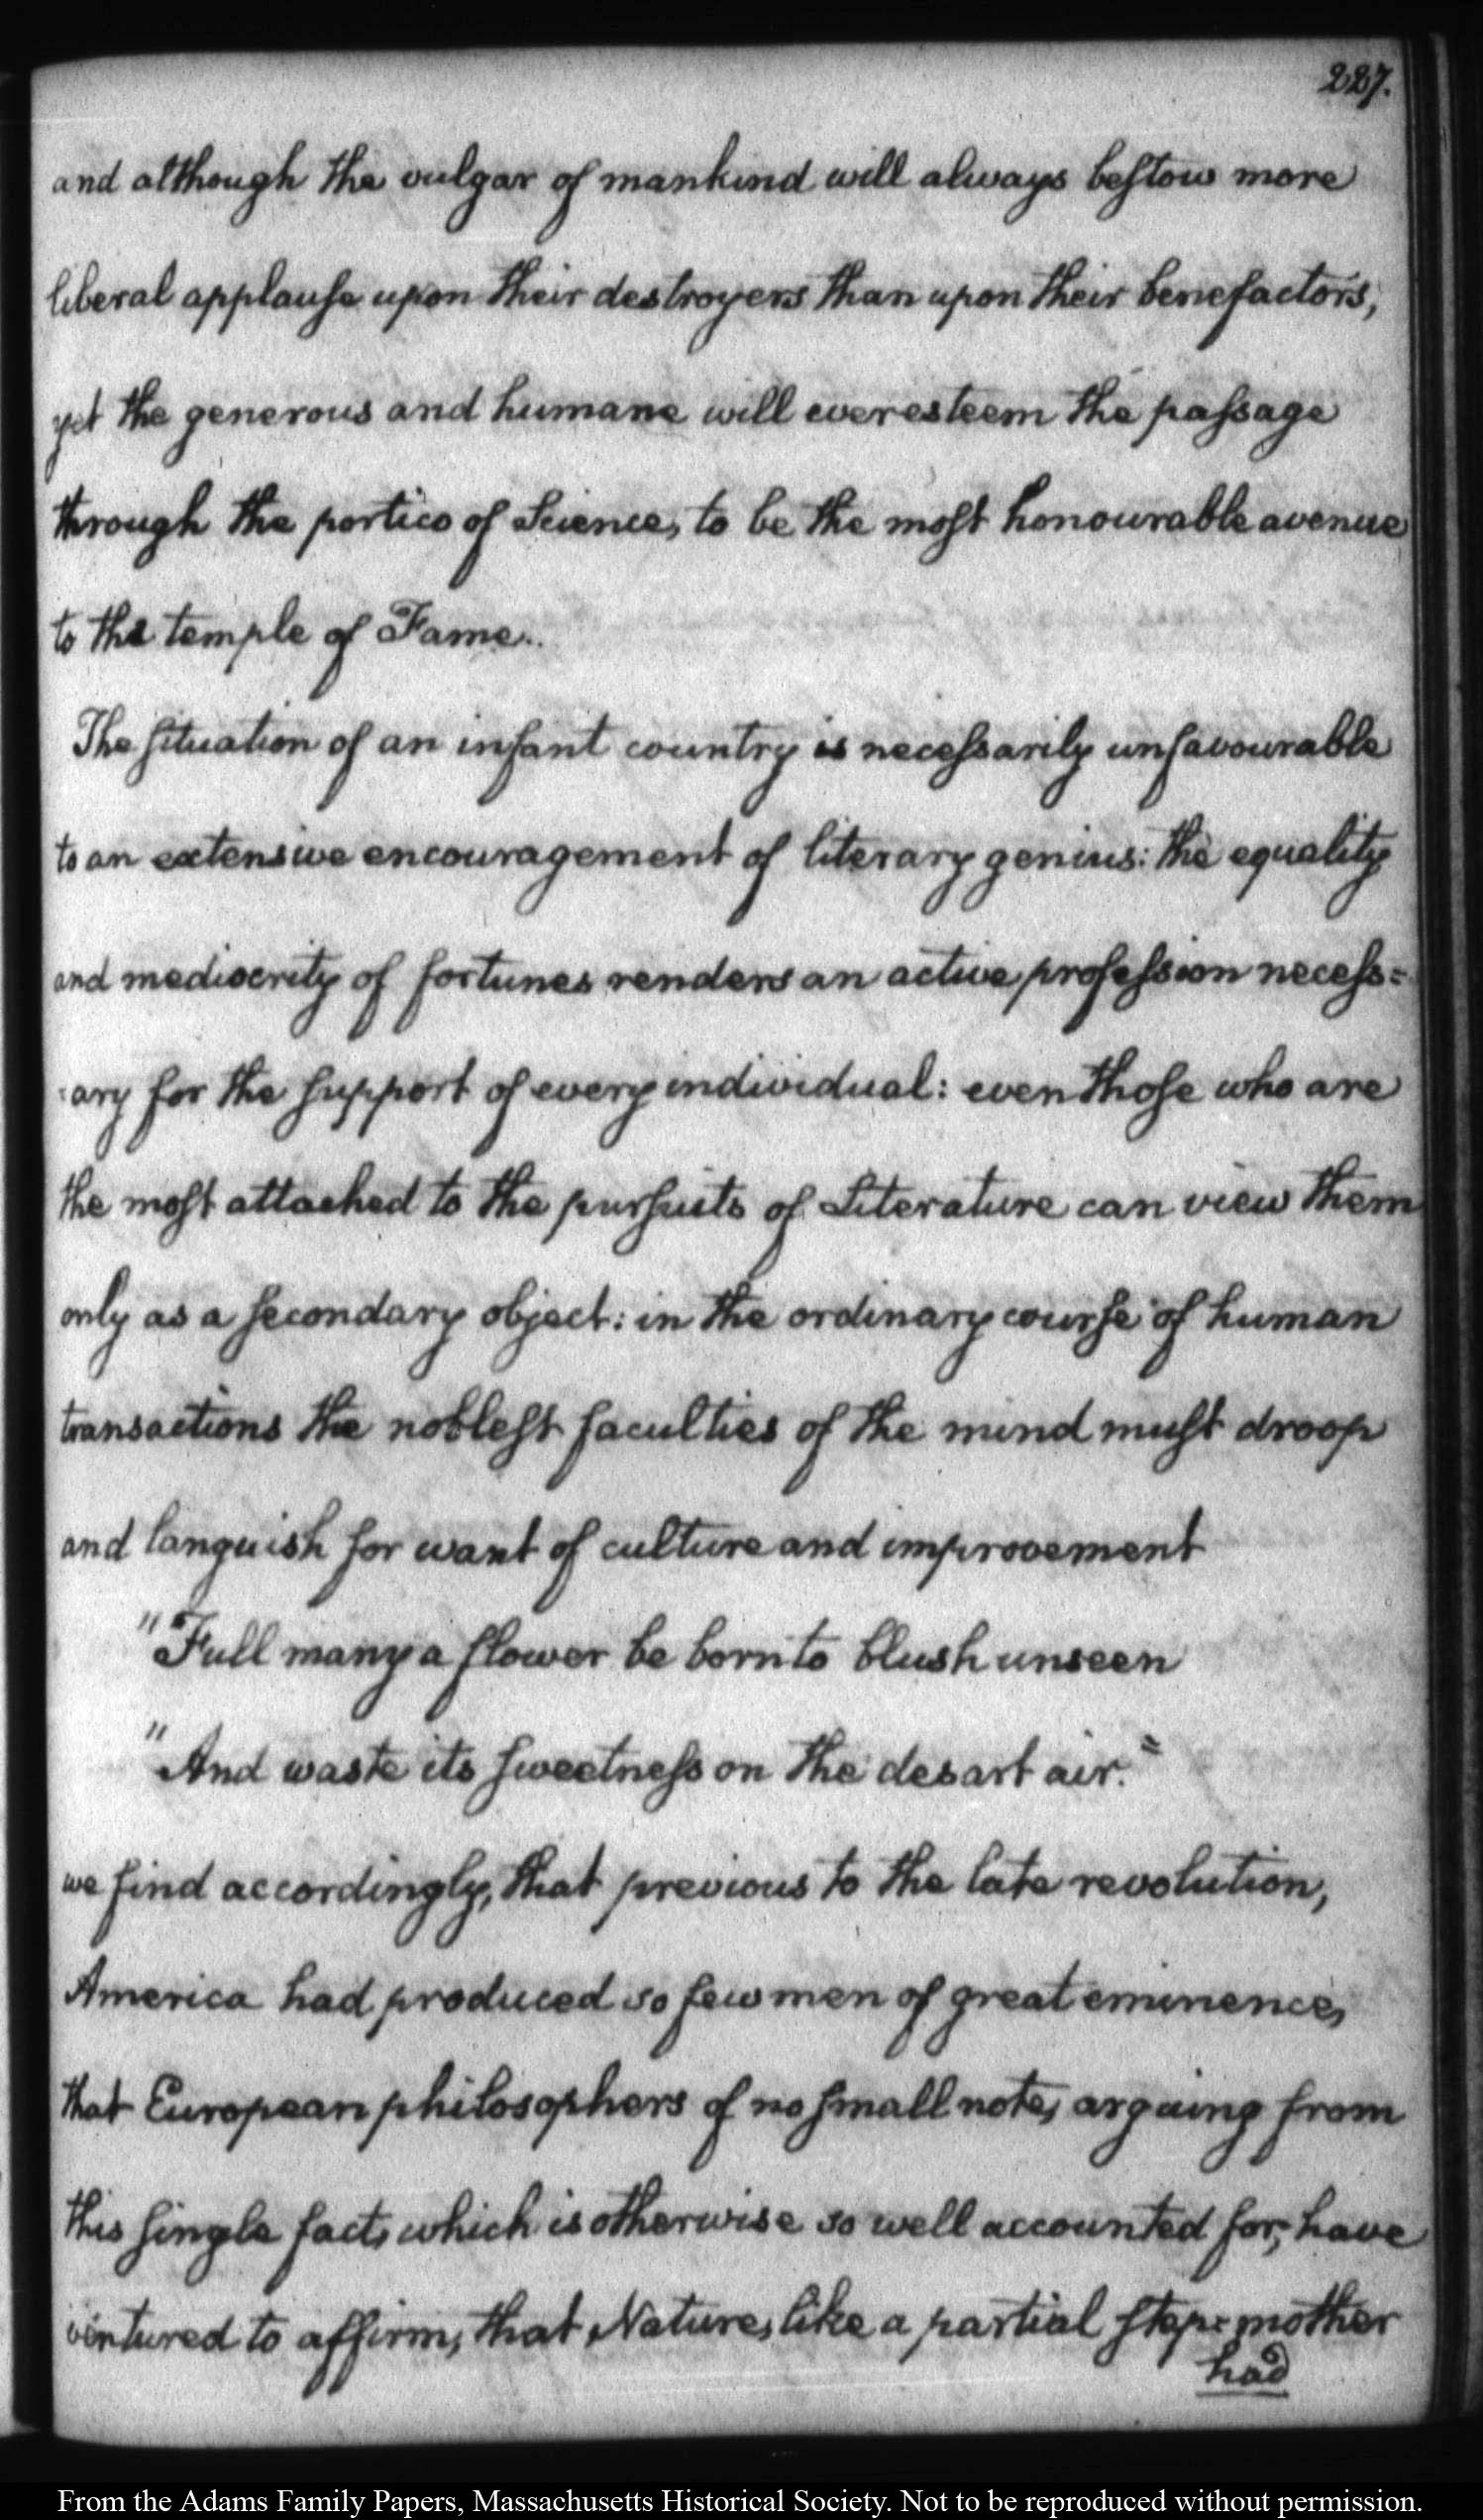 227.
and although the vulgar of mankind will always beſtow more
liberal applauſe upon their destroyers than upon their benefactors,
yet the generous and humane will ever esteem the paſsage
through the portico of Science, to be the moſt honourable avenue
to the temple of Fame.
The ſituation of an infant country is neceſsarily unfavourable
to an extensive encouragement of literary genius: the equality
and mediocrity of fortunes renders an active profeſsion neceſs=
=ary for the ſupport of every individual: even thoſe who are
the moſt attached to the purſuits of Literature can view them
only as a ſecondary object: in the ordinary courſe of human
transactions the nobleſt faculties of the mind muſt droop
and languish for want of culture and improvement
"Full many a flower be born to blush unseen
"And waste its ſweetneſs on the desart air."
we find accordingly, that previous to the late revolution,
America had produced so few men of great eminence,
that European philosophers of no ſmall note, arguing from
this ſingle fact, which is otherwise so well accounted for, have
ventured to affirm, that Nature, like a partial ſtep=mother
had
From the Adams Family Papers, Massachusetts Historical Society. Not to be reproduced without permission.